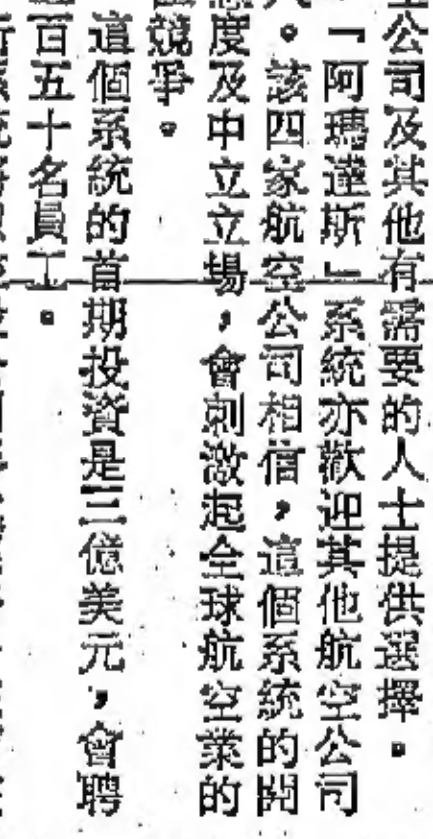 公司及其他有需要的人士提供選擇。
「阿瑪達斯」系統亦歡迎其他航空公司
。該四家航空公司相信，這個系統的開
度及中立立場，會刺激起全球航空業的
競爭。
這個系統的首期投資是三億美元，會聘
百五十名員工。